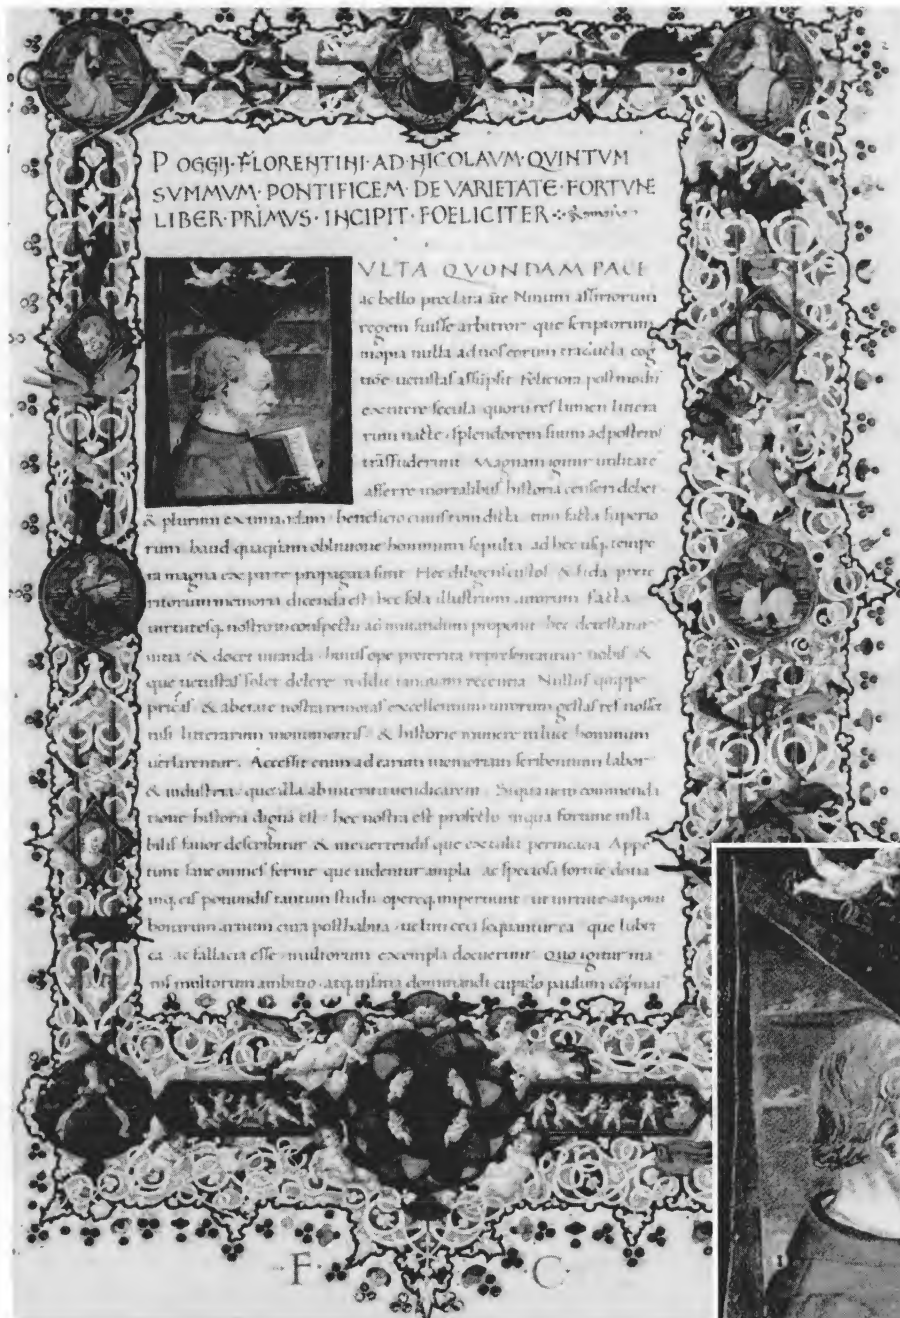 POGGII·FLORENTINI·AD·NICOLAVM·QVINTVM
SVMMVM·PONTIFICEM·DE VARIETATE·FORTVNE
LIBER·PRIMVS·INCIPIT·FOELICITER
VLTA QVONDAM PACE
ac bello preclara āte Ninum assiriorum
regem fuisse arbitror que scriptorum
inopia nulla ad nos eorum traducta cog
uetustas feliciora postmodū
secula quorū res lumen littera
rum nacte splendorem suum ad posteros
trāsfuderunt Magnam igitur utilitatē
afferre mortalibus historia censeri debet
& plurimi cuius tum dicta tum facta superio
rum haud quaquam obliuione hominum sepulta ad hec usq. tempo
ra magna ex parte propagata sunt Hec diligens custos & fida prete
ritorum memoria dicenda est hec sola illustrium uirorum facta
uirtutesq. nostro in conspectu ad imitandum proponit hec detestatur
uitia & docet uitanda huius ope preterita representantur nobis &
que uetustas solet delere reddit tanquam recentia Nullus quippe
priscas & ab etate nostra remotas excellentium uirorum gestas res nosset
nisi litterarum monumentis & historie munere in luce hominum
uersarentur. Accessit enim ad earum memoriam scribentium labor
& industria que illa ab interitu uendicarent Siqua uero commenda
tione historia digna est hec nostra est profecto in qua fortune insta
bilis fauor describitur & in euertendis que extulit peruicacia Appe
tunt sane omnes ferme que uidentur ampla ac speciosa fortūe dona
inq. eis potiundis tantum studii opereq. impertiunt ut uirtute atq. omni
bonarum artium cura posthabita uelut ceci sequantur ea que lubri
ca ac fallacia esse multorum exempla docuerunt Quo igitur ma
nis multorum ambitio atq. insana dominandi cupido paulum
·F· ·C·